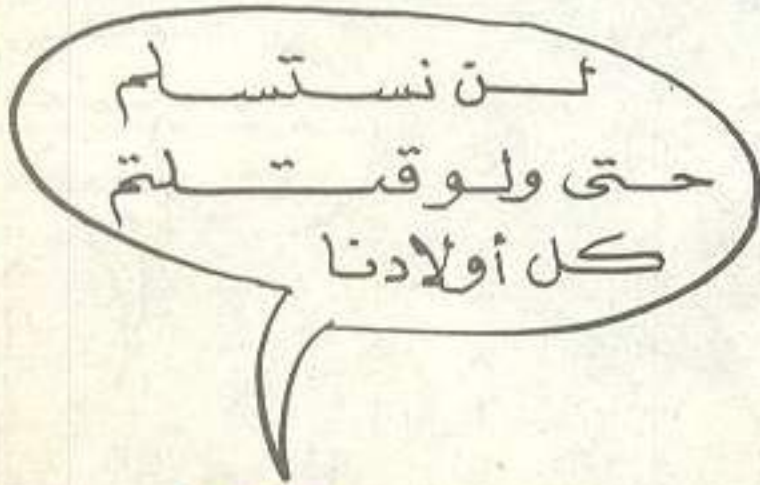 لن نستسلم
حتى ولو قتلتم
كل أولادنا